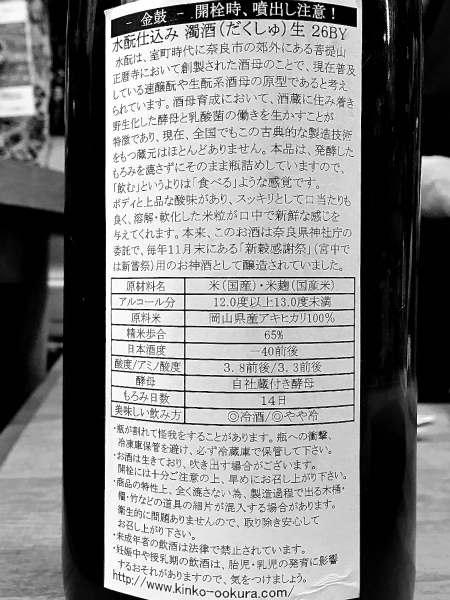 - 金鼓 - 開栓時、噴出し注意！
水酛仕込み 濁酒（だくしゅ）生 26BY
水酛は、室町時代に奈良市の郊外にある菩提山
正暦寺において創製された酒母のことで、現在普及
している速醸酛や生酛系酒母の原型であると考え
られています。酒母育成において、酒蔵に住み着き
野生化した酵母と乳酸菌の働きを生かすことが
特徴であり、現在、全国でもこの古典的な製造技術
をもつ蔵元はほとんどありません。本品は、発酵した
もろみを漉さずにそのまま瓶詰めしていますので、
「飲む」というよりは「食べる」ような感覚です。
ボディと上品な酸味があり、スッキリとして口当たりも
良く、溶解・軟化した米粒が口中で新鮮な感じを
与えてくれます。本来、このお酒は奈良県神社庁の
委託で、毎年11月末にある「新穀感謝祭」（宮中で
は新嘗祭）用のお神酒として醸造されていました。
原材料名 米（国産）・米麹（国産米）
アルコール分 12.0度以上13.0度未満
原料米 岡山県産アキヒカリ100%
精米歩合 65%
日本酒度 −40前後
酸度/アミノ酸度 3.8前後/3.3前後
酵母 自社蔵付き酵母
もろみ日数 14日
美味しい飲み方 ◎冷酒/◎やや冷
・瓶が割れて怪我をすることがあります。瓶への衝撃、
冷凍庫保管を避け、必ず冷蔵庫で保管して下さい。
・お酒は生きており、吹き出す場合がございます。
開栓には十分ご注意の上、早めにお召し上がり下さい。
・商品の特性上、全く漉さない為、製造過程で出る木桶・
櫂・竹などの道具の細片が混入する場合があります。
衛生的に問題ありませんので、取り除き安心して
お召し上がり下さい。
・未成年者の飲酒は法律で禁止されています。
・妊娠中や授乳期の飲酒は、胎児・乳児の発育に影響
するおそれがありますので、気をつけましょう。
http://www.kinko-ookura.com/